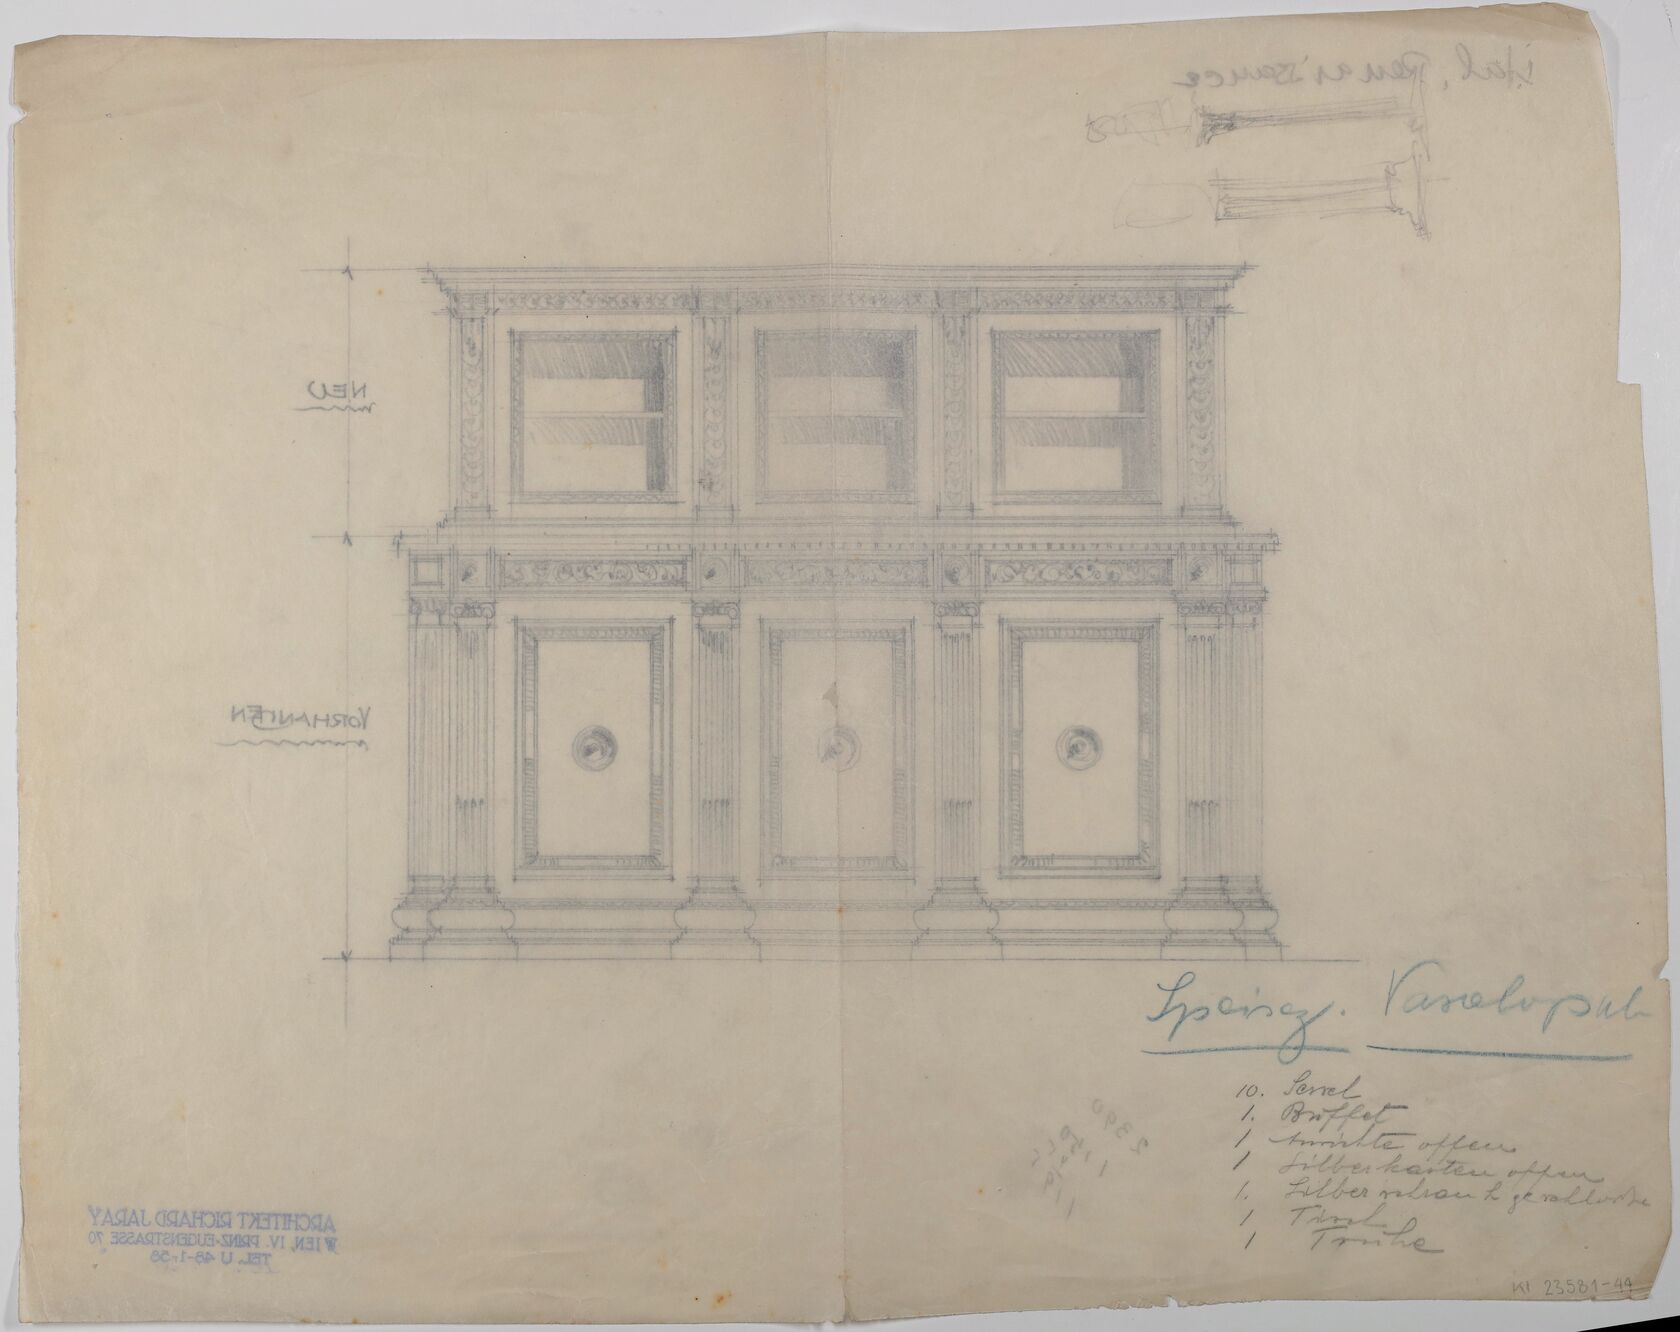 ital. Renaissance
NEU
VORHANDEN
Speisez.
10. Sessel
1. Büffet
1 Anrichte offen
1 Silberkasten offen
1. Silberschrank geschlossen
1 Tisch
1 Truhe
2390
ARCHITEKT RICHARD JARAY
WIEN, IV. PRINZ-EUGENSTRASSE 70
TEL. U 48-1-58
KI 23581-44